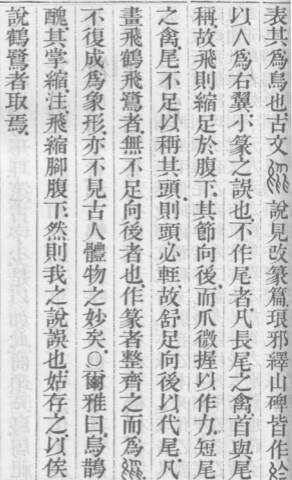 表其爲鳥也古文 說見改篆篇琅邪繹山碑皆作於
以人爲右翼小篆之誤也不作尾者凡長尾之禽首與尾
稱故飛則縮足於腹下其節向後而爪微握以作力短尾
之禽尾不足以稱其頭則頭必輕故舒足向後以代尾凡
畫飛鶴飛鷺者無不足向後者也作篆者整齊之而爲
不復成爲象形亦不見古人體物之妙矣〇爾雅曰烏鵲
醜其掌縮注飛縮腳腹下然則我之說誤也姑存之以俟
說鶴鷺者取焉